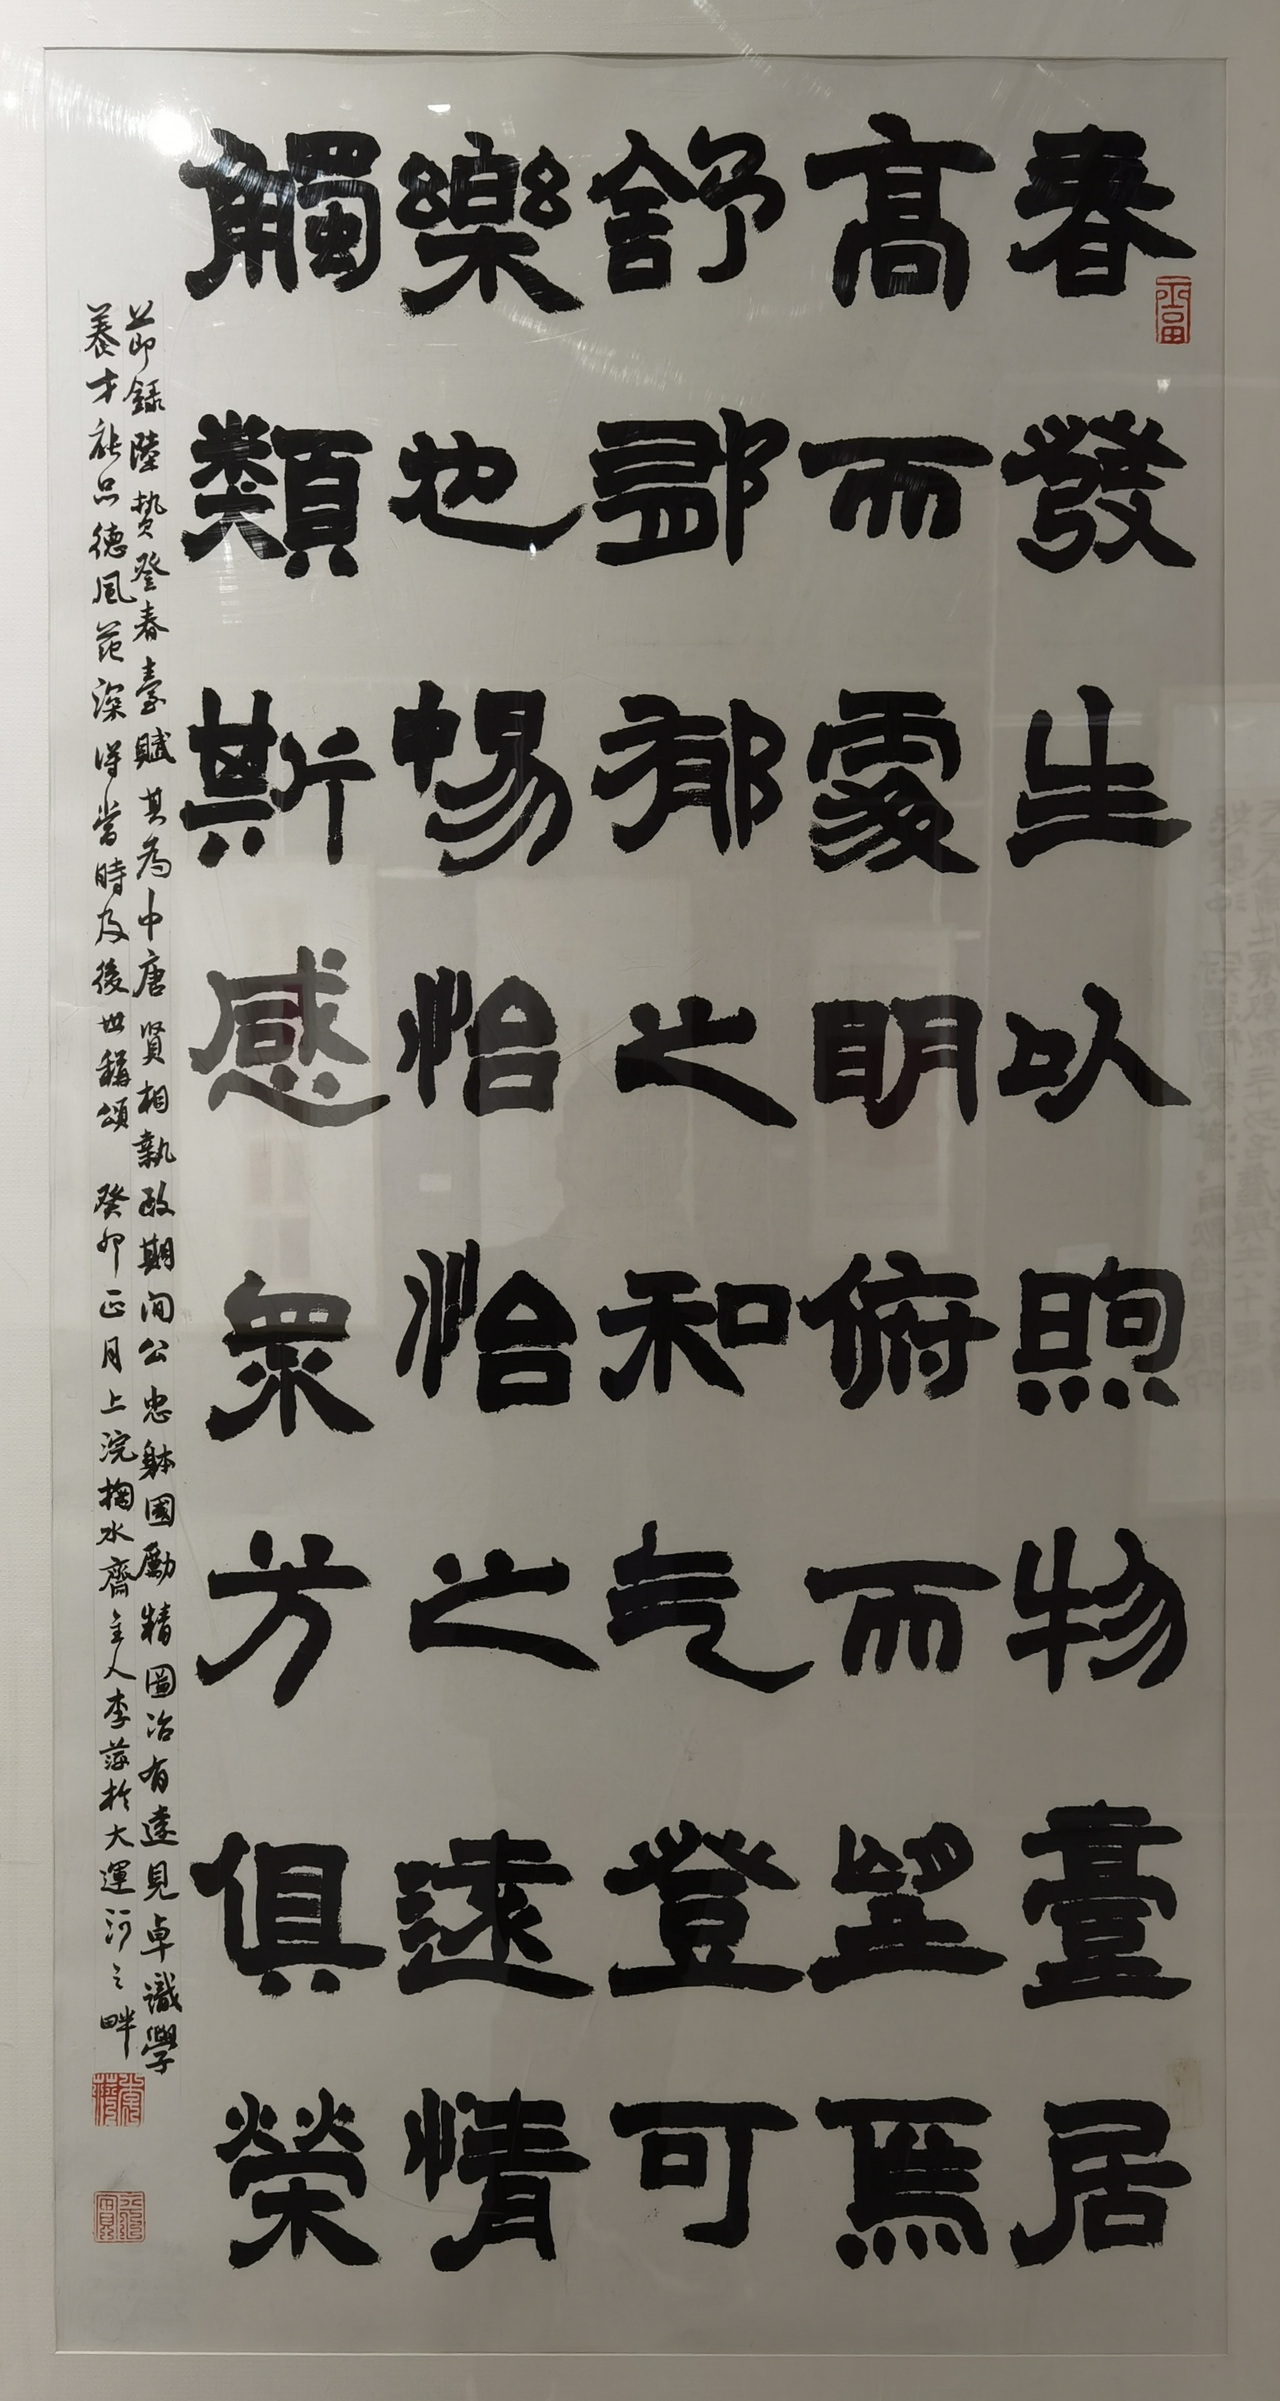 春發生以煦物臺居
高而處明俯而望焉
舒郁之和气登可
樂也暢怡怡之遠情
觸類斯感眾芳俱榮
節録陸贄登春臺賦其為中唐賢相執政期间公忠躰國勵精圖治有遠見卓識學
養才能品德風范深得當時及後世稱頌 癸卯正月上浣掬水齋主人李於大運河之畔